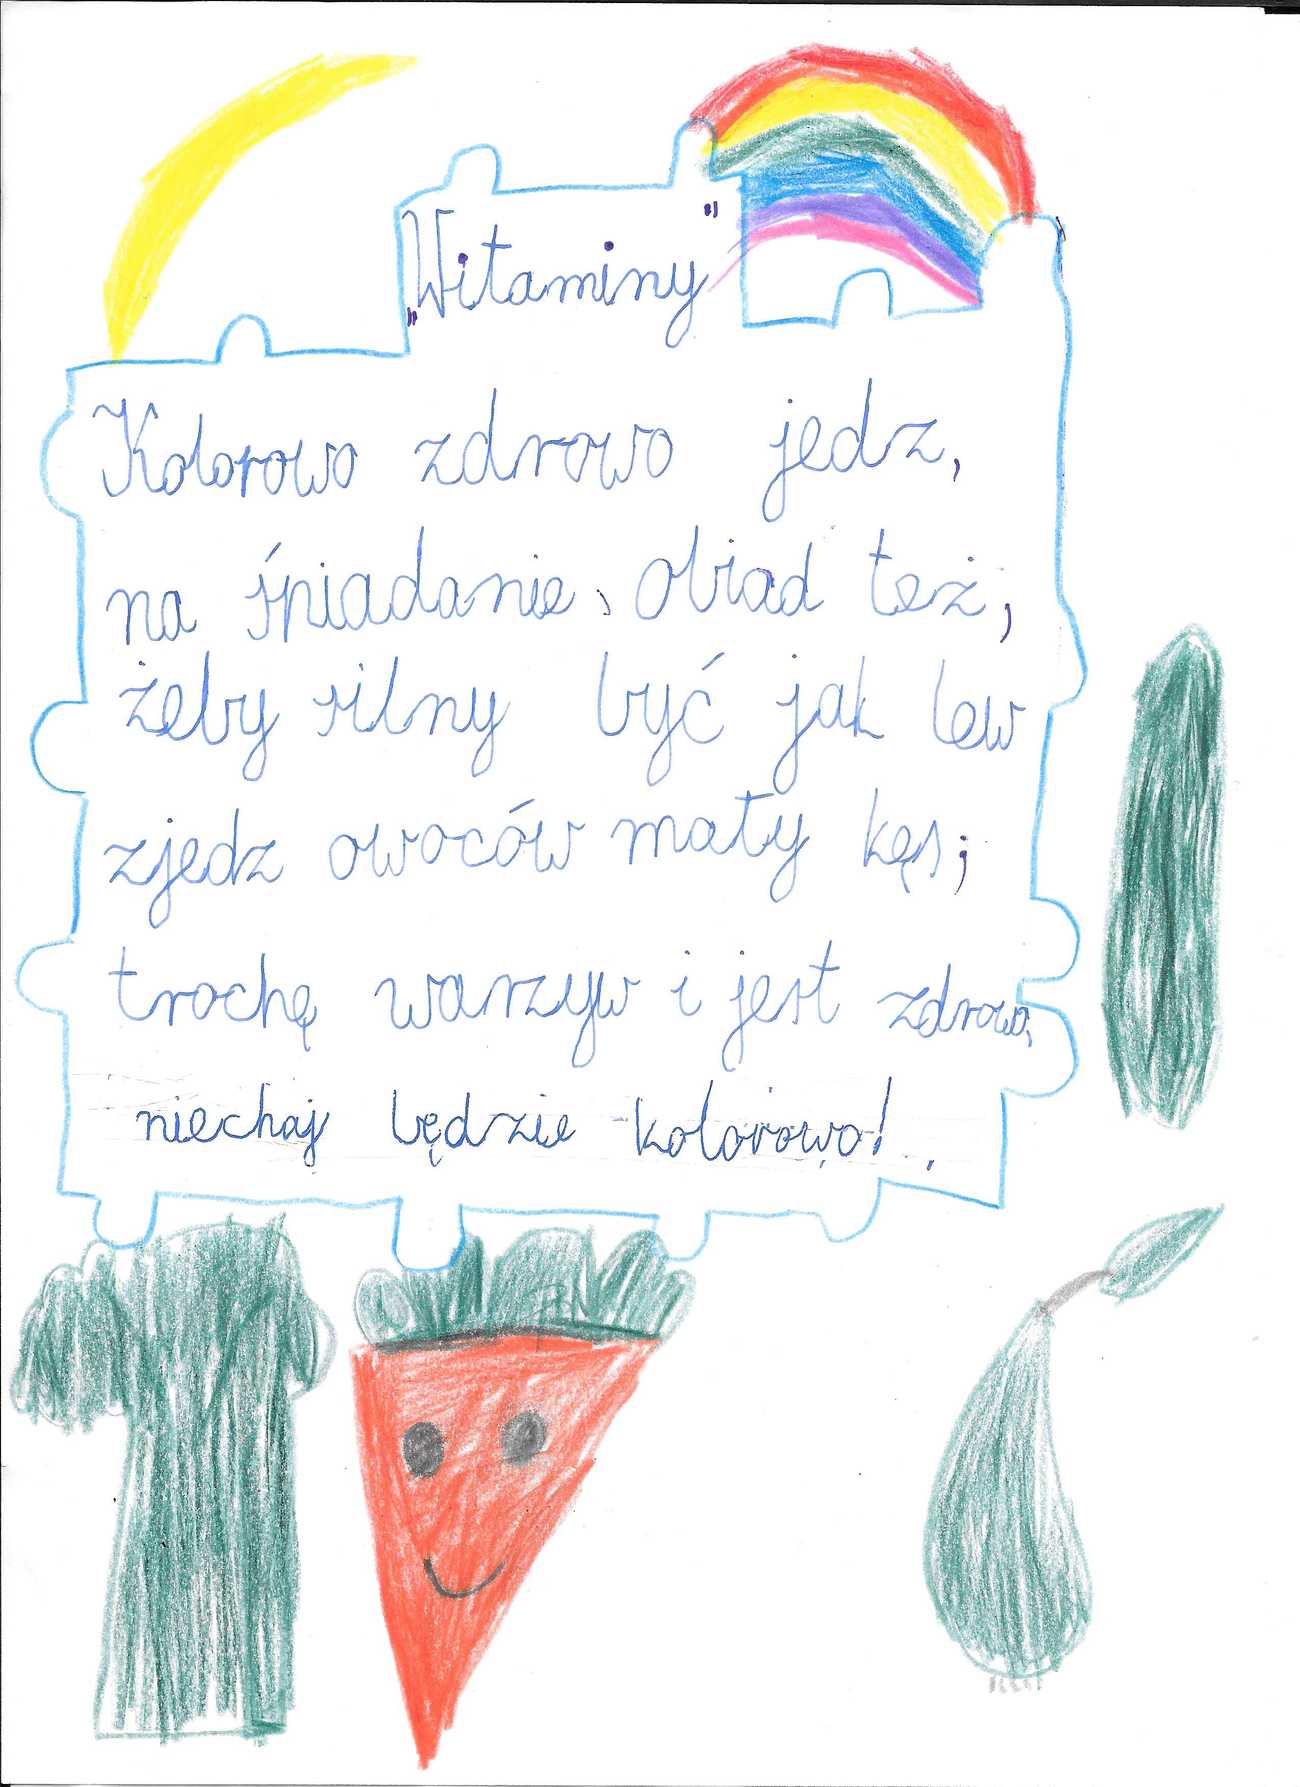 „Witaminy”
Kolorowo zdrowo jedz,
na śniadanie, obiad też,
żeby silny być jak lew
zjedz owoców mały kęs,
trochę warzyw i jest zdrowo,
niechaj będzie kolorowo!